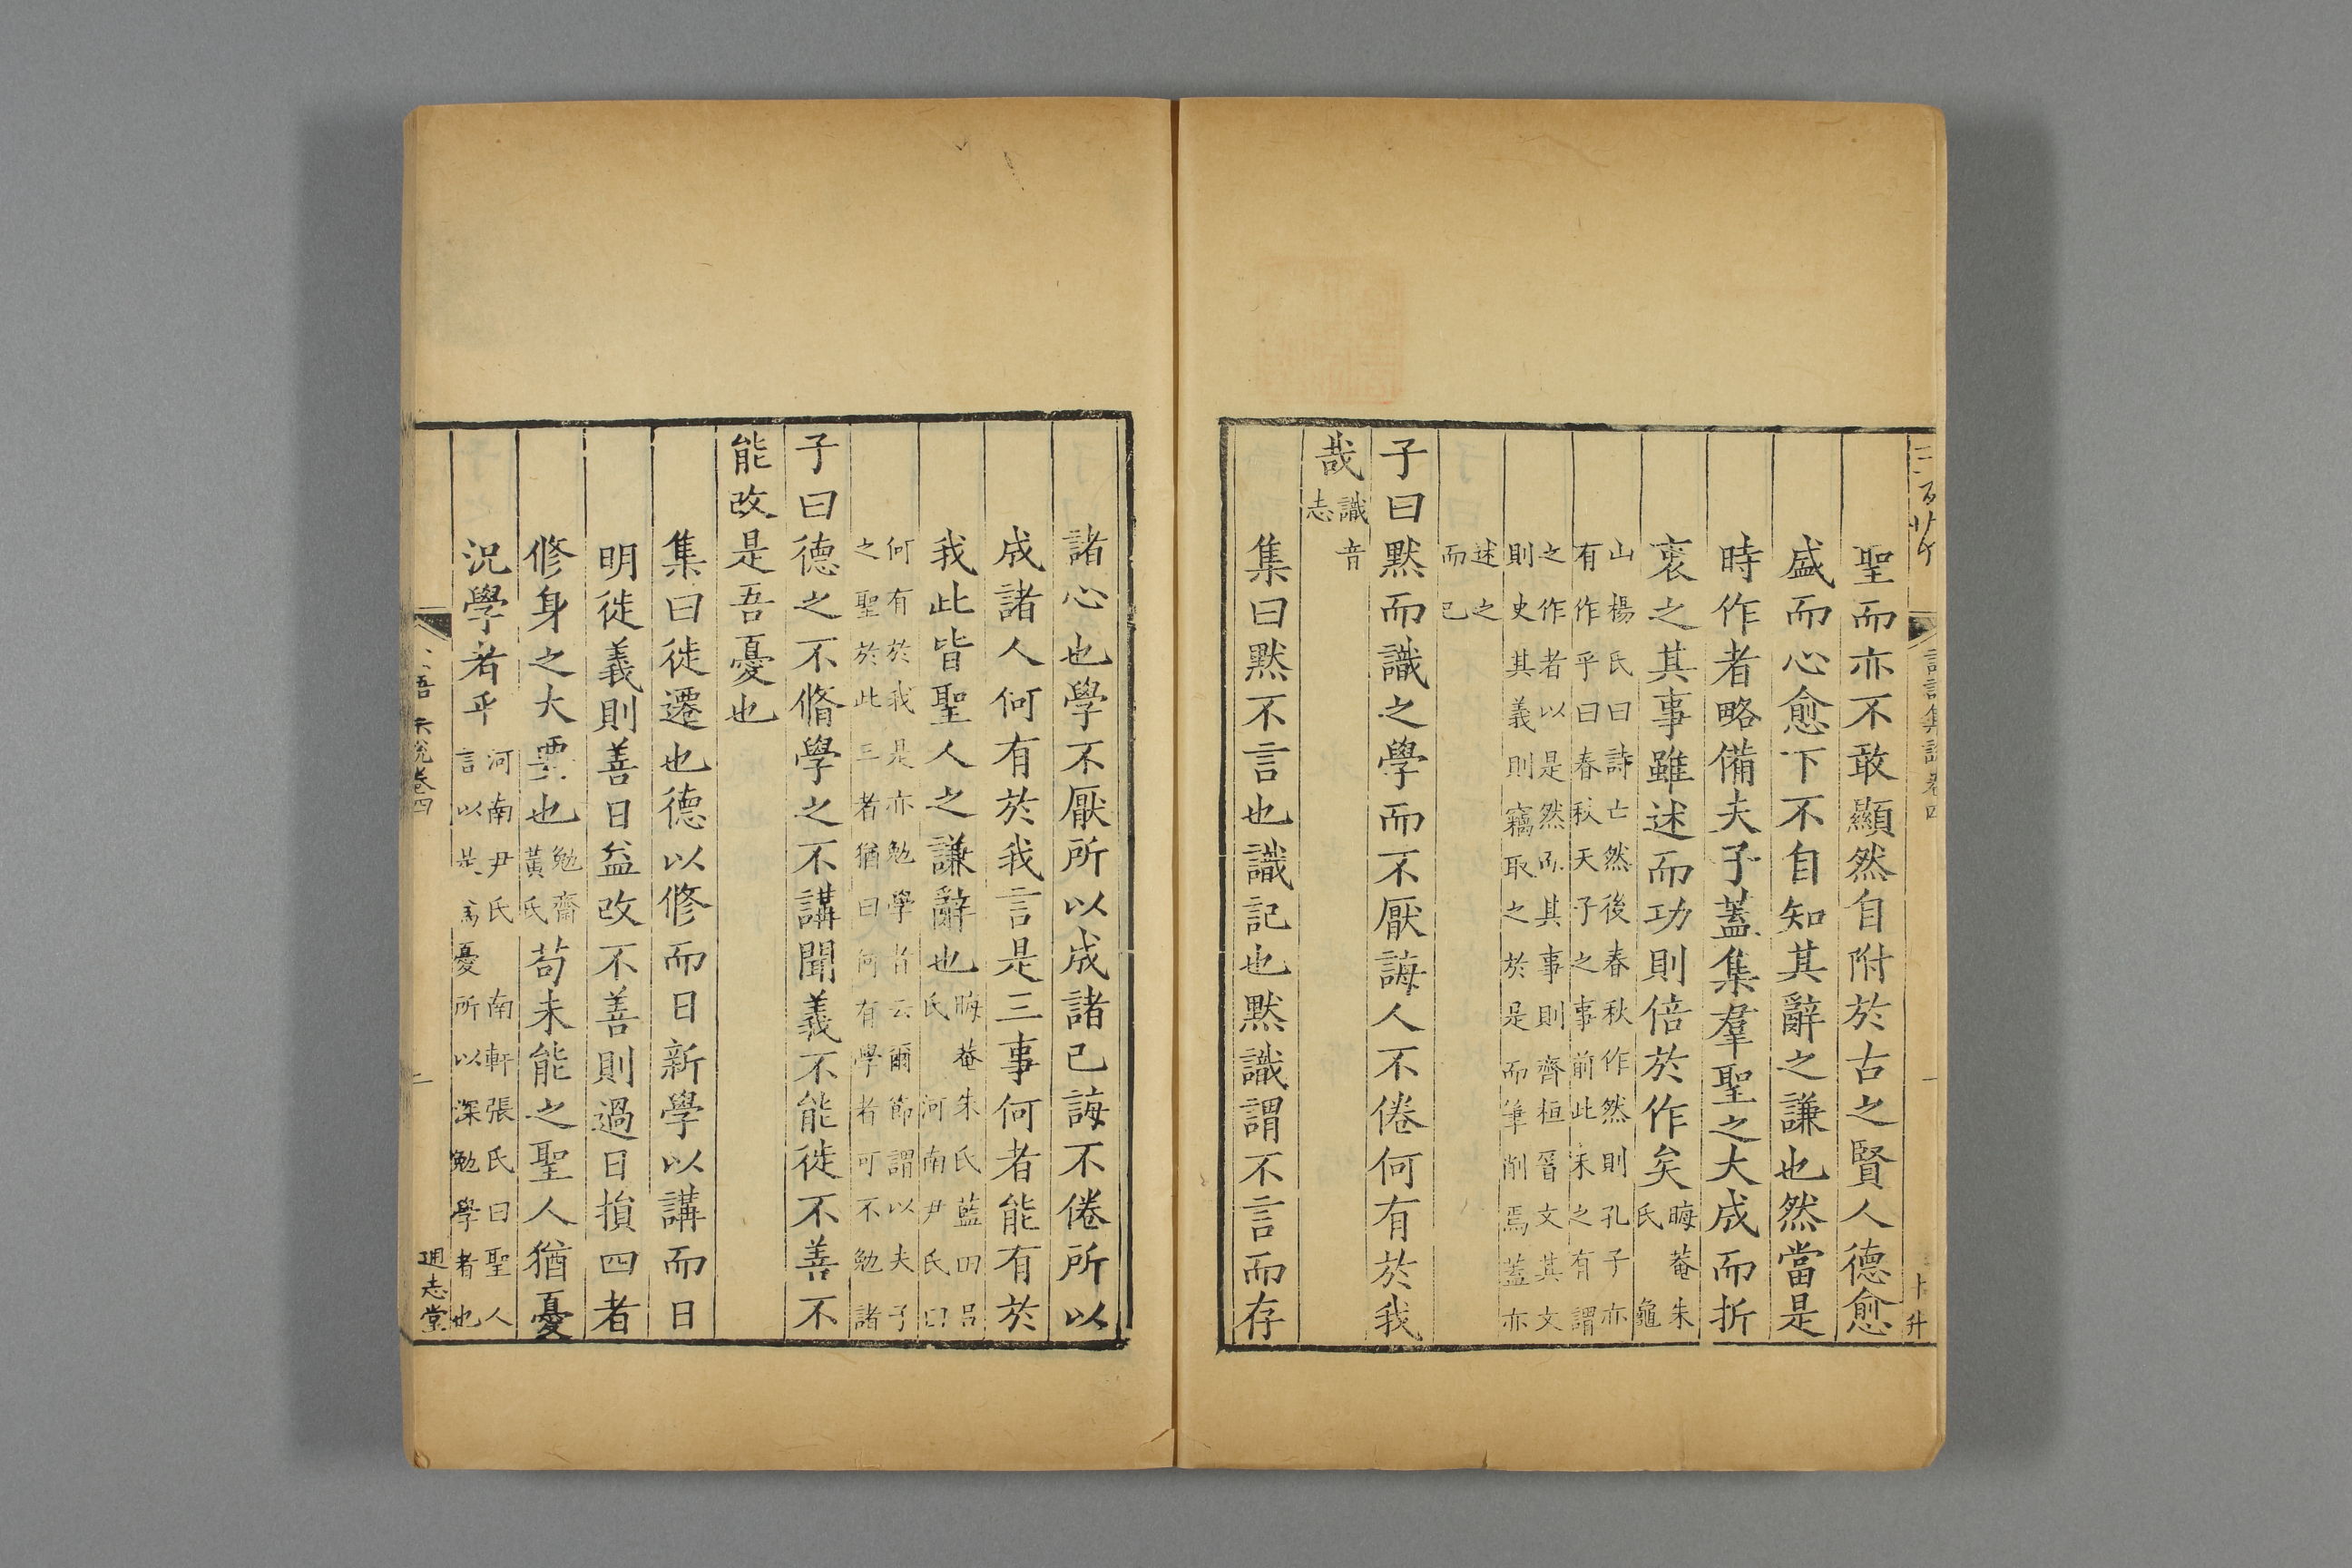 聖而亦不敢顯然自附於古之賢人德愈
盛而心愈下不自知其辭之謙也然當是
時作者略備夫子蓋集羣聖之大成而折
衷之其事雖述而功則倍於作矣晦菴朱氏龜
山楊氏曰詩亡然後春秋作然則孔子亦
有作乎曰春秋天子之事前此未之有謂
之作者以是然而其事則齊桓晉文其文
則史其義則竊取之於是而筆削焉蓋亦
述之
而已
子曰黙而識之學而不厭誨人不倦何有於我
哉識音志
集曰黙不言也識記也黙識謂不言而存
諸心也學不厭所以成諸己誨不倦所以
成諸人何有於我言是三事何者能有於
我此皆聖人之謙辭也晦菴朱氏藍田呂氏河南尹氏曰
何有於我是亦勉學者云爾節謂以夫子
之聖於此三者猶曰何有學者可不勉諸
子曰德之不脩學之不講聞義不能徙不善不
能改是吾憂也
集曰徙遷也德以修而日新學以講而日
明徙義則善日益改不善則過日損四者
修身之大要也勉齋黃氏苟未能之聖人猶憂
況學者乎河南尹氏南軒張氏曰聖人言以是為憂所以深勉學者也
卷四
通志堂